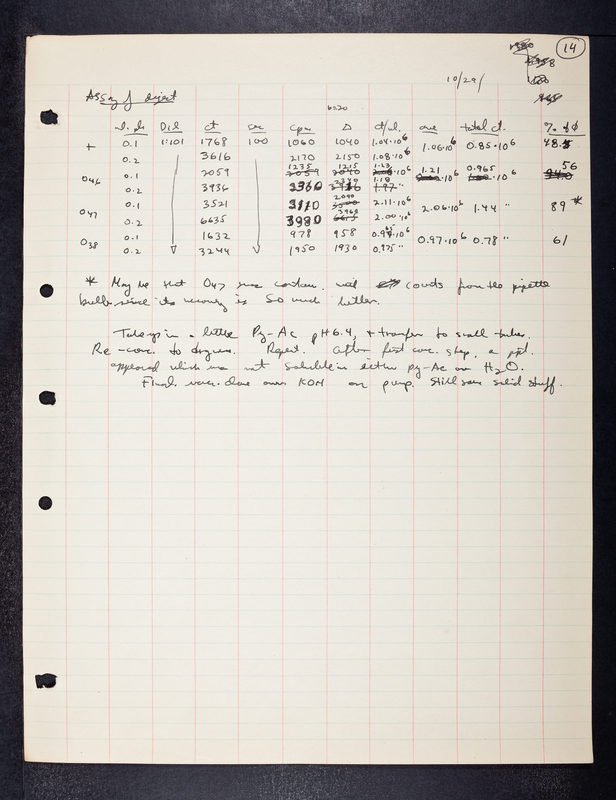 14
10/29/
Assay of digest
bg 20
Dil ct sec cpm Δ ct/ml. ave total ct. % of φ
+ 0.1 1:101 1768 100 1060 1040 1.04·10⁶ 1.06·10⁶ 0.85·10⁶ 48.5
0.2 3616 2170 2150 1.08·10⁶
1235 1215 1.23 56
O46 0.1 2059 2059 2040 ·10⁶ 1.21 ·10⁶ 0.965 ·10⁶
2360 2340 1.18
0.2 3936 "
2090
O47 0.1 3521 3110 2.11·10⁶ 2.06·10⁶ 1.44 " 89*
3960
0.2 6635 3980 2.00·10⁶
O38 0.1 1632 978 958 0.97·10⁶ 0.78 " 61
0.2 3244 1950 1930 0.975 "
* May be that O47 was contam. with counts from the pipette
bulb since its recovery is so much better.
Take up in a little Py-Ac pH 6.4, & transfer to small tubes.
Re-conc. to dryness. Repeat. After first conc. step, a ppt.
appeared which was not soluble in either py-Ac or H₂O.
Final vac. done over KOH on pump. Still saw solid stuff.